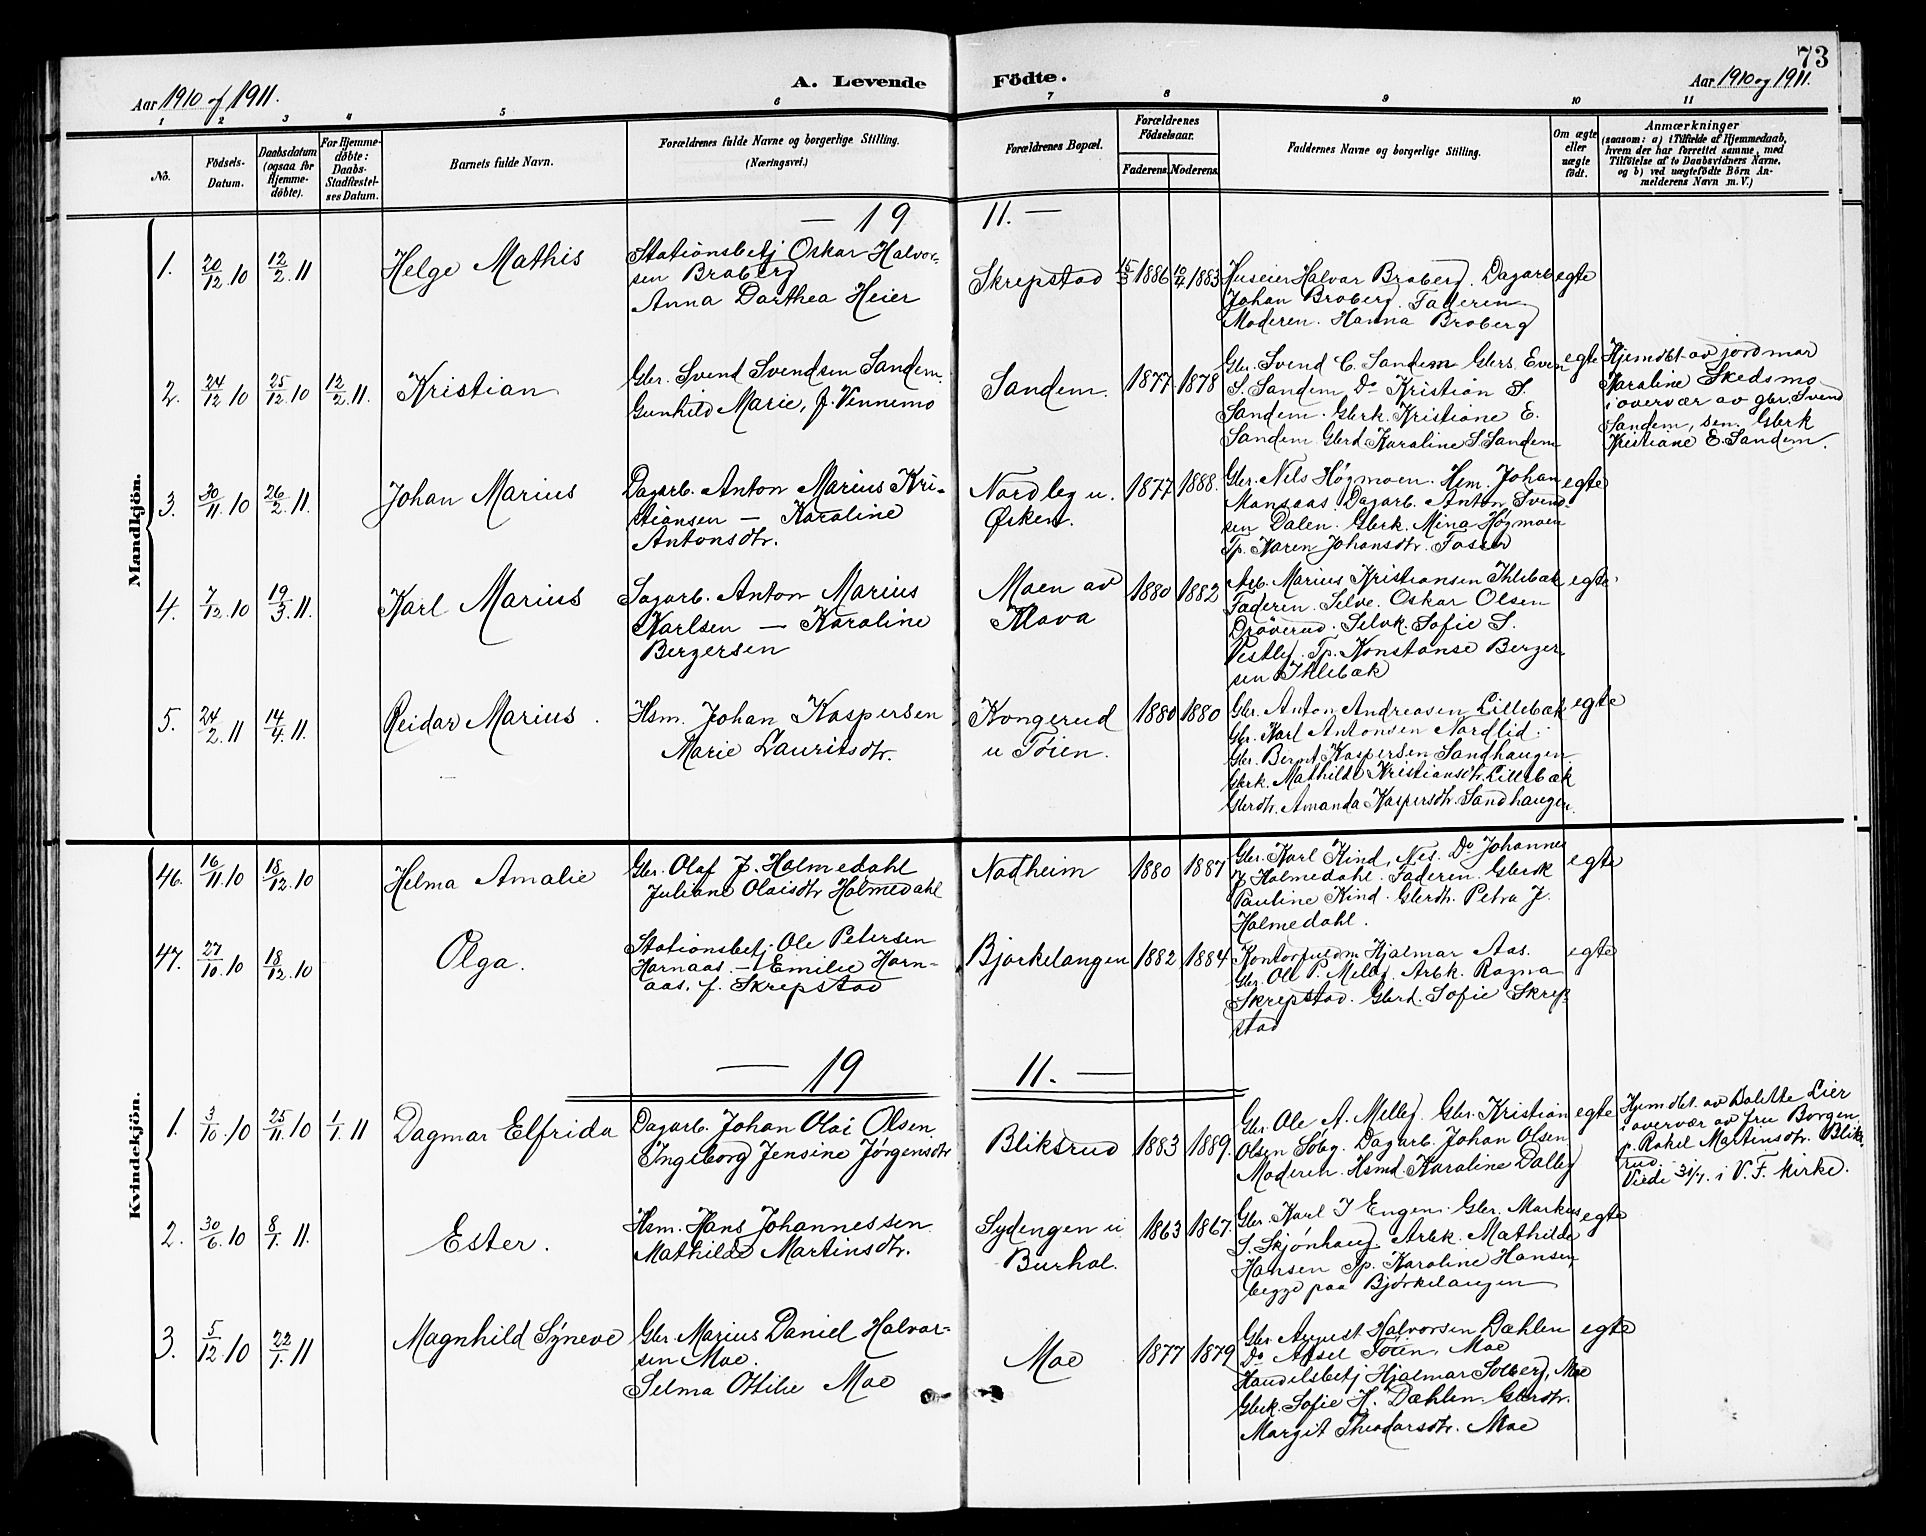 73
Aar 1910 og 1911.
A. Levende Födte.
Aar 1910 og 1911.
1 2 3 4 5 6 7 8 9 10 11
No.
Födsels-Datum.
Daabsdatum (ogsaa for Hjemme-döbte).
For Hjemme-döbte: Daabs-Stadfæstel-ses Datum.
Barnets fulde Navn.
Forældrenes fulde Navne og borgerlige Stilling. (Næringsvei.)
Forældrenes Bopæl.
Forældrenes Födselsaar.
Faderens Moderens
Faddernes Navne og borgerlige Stilling.
Om ægte eller uægte födt.
Anmærkninger
(saasom: a) i Tilfælde af Hjemmedaab,
hvem der har forrettet samme, med
Tilföielse af to Daabsvidners Navne,
og b) ved uægtefödte Börn An-
melderens Navn m. V.)
— 19 11. —
Mandkjön.
1. 20/12 10 12/2 11 Helge Mathis
Stationsbetj Oskar Halvor-
sen Braberg
Anna Dorthea Heier
Skrepstad 15/3 1886 10/4 1883
Huseier Halvar Broberg. Dagarb
Johan Broberg. Faderen
Moderen. Hanna Broberg
egte
2. 24/12 10 25/12 10 12/2 11. Kristian
Gbr. Svend Svendsen Sandem.
Gunhild Marie, f. Vennemo
Sandem. 1877 1878
Gbr. Svend C. Sandem Gbrs. Even
S. Sandem Do Kristian S.
Sandem. Gbrk. Kristiane E.
Sandem. Gbrd. Karoline S. Sandem
egte
Hjemdbt. av jordmor
Karoline Skedsmo
i overvær av gbr. Svend
Sandem, sen. Gbrk
Kristiane E. Sandem.
3. 30/11 10 26/2 11. Johan Marius
Dagarb. Anton Marius Kri-
stiansen — Karoline
Antonsdtr.
Nordleg u.
Ørken. 1877 1888.
Gbr. Nils Høgmoen. Hsm. Johan
Mansaas Dagarb. Anton Svend-
sen Dalen. Gbrk. Mina Høgmoen
Tp. Karen Johansdtr. Fosser
egte
4. 7/12 10 19/3 11. Karl Marius
Sagarb. Anton Marius
Karlsen — Karoline
Bergersen
Moen av
Mova 1880 1882
Arb. Marius Kristiansen Ihlebæk
Faderen. Selve. Oskar Olsen
Drøverud. Selvk. Sofie S.
Vestby. Tp. Konstanse Berger-
sen Ihlebæk
egte
5. 24/2 11 14/4 11. Reidar Marius.
Hsm. Johan Kaspersen
Marie Lauritsdtr.
Kongerud
u Töien. 1880 1880
Gbr. Anton Andreasen Lillebæk
Gbr. Karl Antonsen Nordlid.
Gbr. Bernt Kaspersen Sandhaugen
Gbrk. Mathilde Kristiansdtr. Lillebæk
Gbrdtr. Amanda Kaspersdtr. Sandhaugen
egte
Kvindekjön.
46. 16/11 10 18/12 10 Helma Amalie
Gbr. Olaf J. Holmedahl
Juliane Olaisdtr Holmedahl
Nodheim 1880 1887
Gbr. Karl Kind, Nes. Do Johannes
J Holmedahl. Faderen. Gbrk
Pauline Kind. Gbrdtr. Petra J.
Holmedahl.
egte
47. 27/10 10 18/12 10 Olga.
Stationsbetj. Ole Petersen
Harnaas. — Emilie Harn-
aas, f. Skrepstad
Bjørkelangen 1882 1884
Kontorfuldm Hjalmar Aas.
Gbr. Ole P. Melby. Arbk. Ragna
Skrepstad. Gbrd. Sofie Skrep-
stad
egte
— 19 11. —
1. 3/10 10 25/11 10 1/1 11 Dagmar Elfrida
Dagarb. Johan Olai Olsen.
Ingeborg Jensine Jörgensdtr
Bliksrud 1883 1889.
Gbr. Ole A. Melby. Gbr. Kristian
Olsen Soby. Dagarb. Johan Olsen
Moderen. Hsmd. Karoline Dalby
egte
Hjemdbt. av Dolette Lier
i overvær av fru Borgen
p. Rakel Martinsdtr. Blik-
rud.
Viede 31/7. i V. F. kirke.
2. 30/6 10 8/1 11. Ester.
Hsm. Hans Johannessen
Mathilde Martinsdtr.
Sydengen u
Burhol. 1863 1867.
Gbr. Karl J Engen. Gbr. Markus
S. Skjønhaug. Arbk. Mathilde
Hansen Tp. Karoline Hansen,
begge paa Bjørkelangen
egte
3. 5/12 10 22/1 11 Magnhild Syneve
Gbr. Marius Daniel Halvor-
sen Moe.
Selma Otilie Moe
Moe 1877 1879
Gbr. August Halvorsen Dæhlen
Do Aksel Töien, Moe
Handelsbetj Hjalmar Solberg, Moe
Gbrk. Sofie H. Dæhlen. Gbrdtr.
Margit Theodorsdtr. Moe
egte